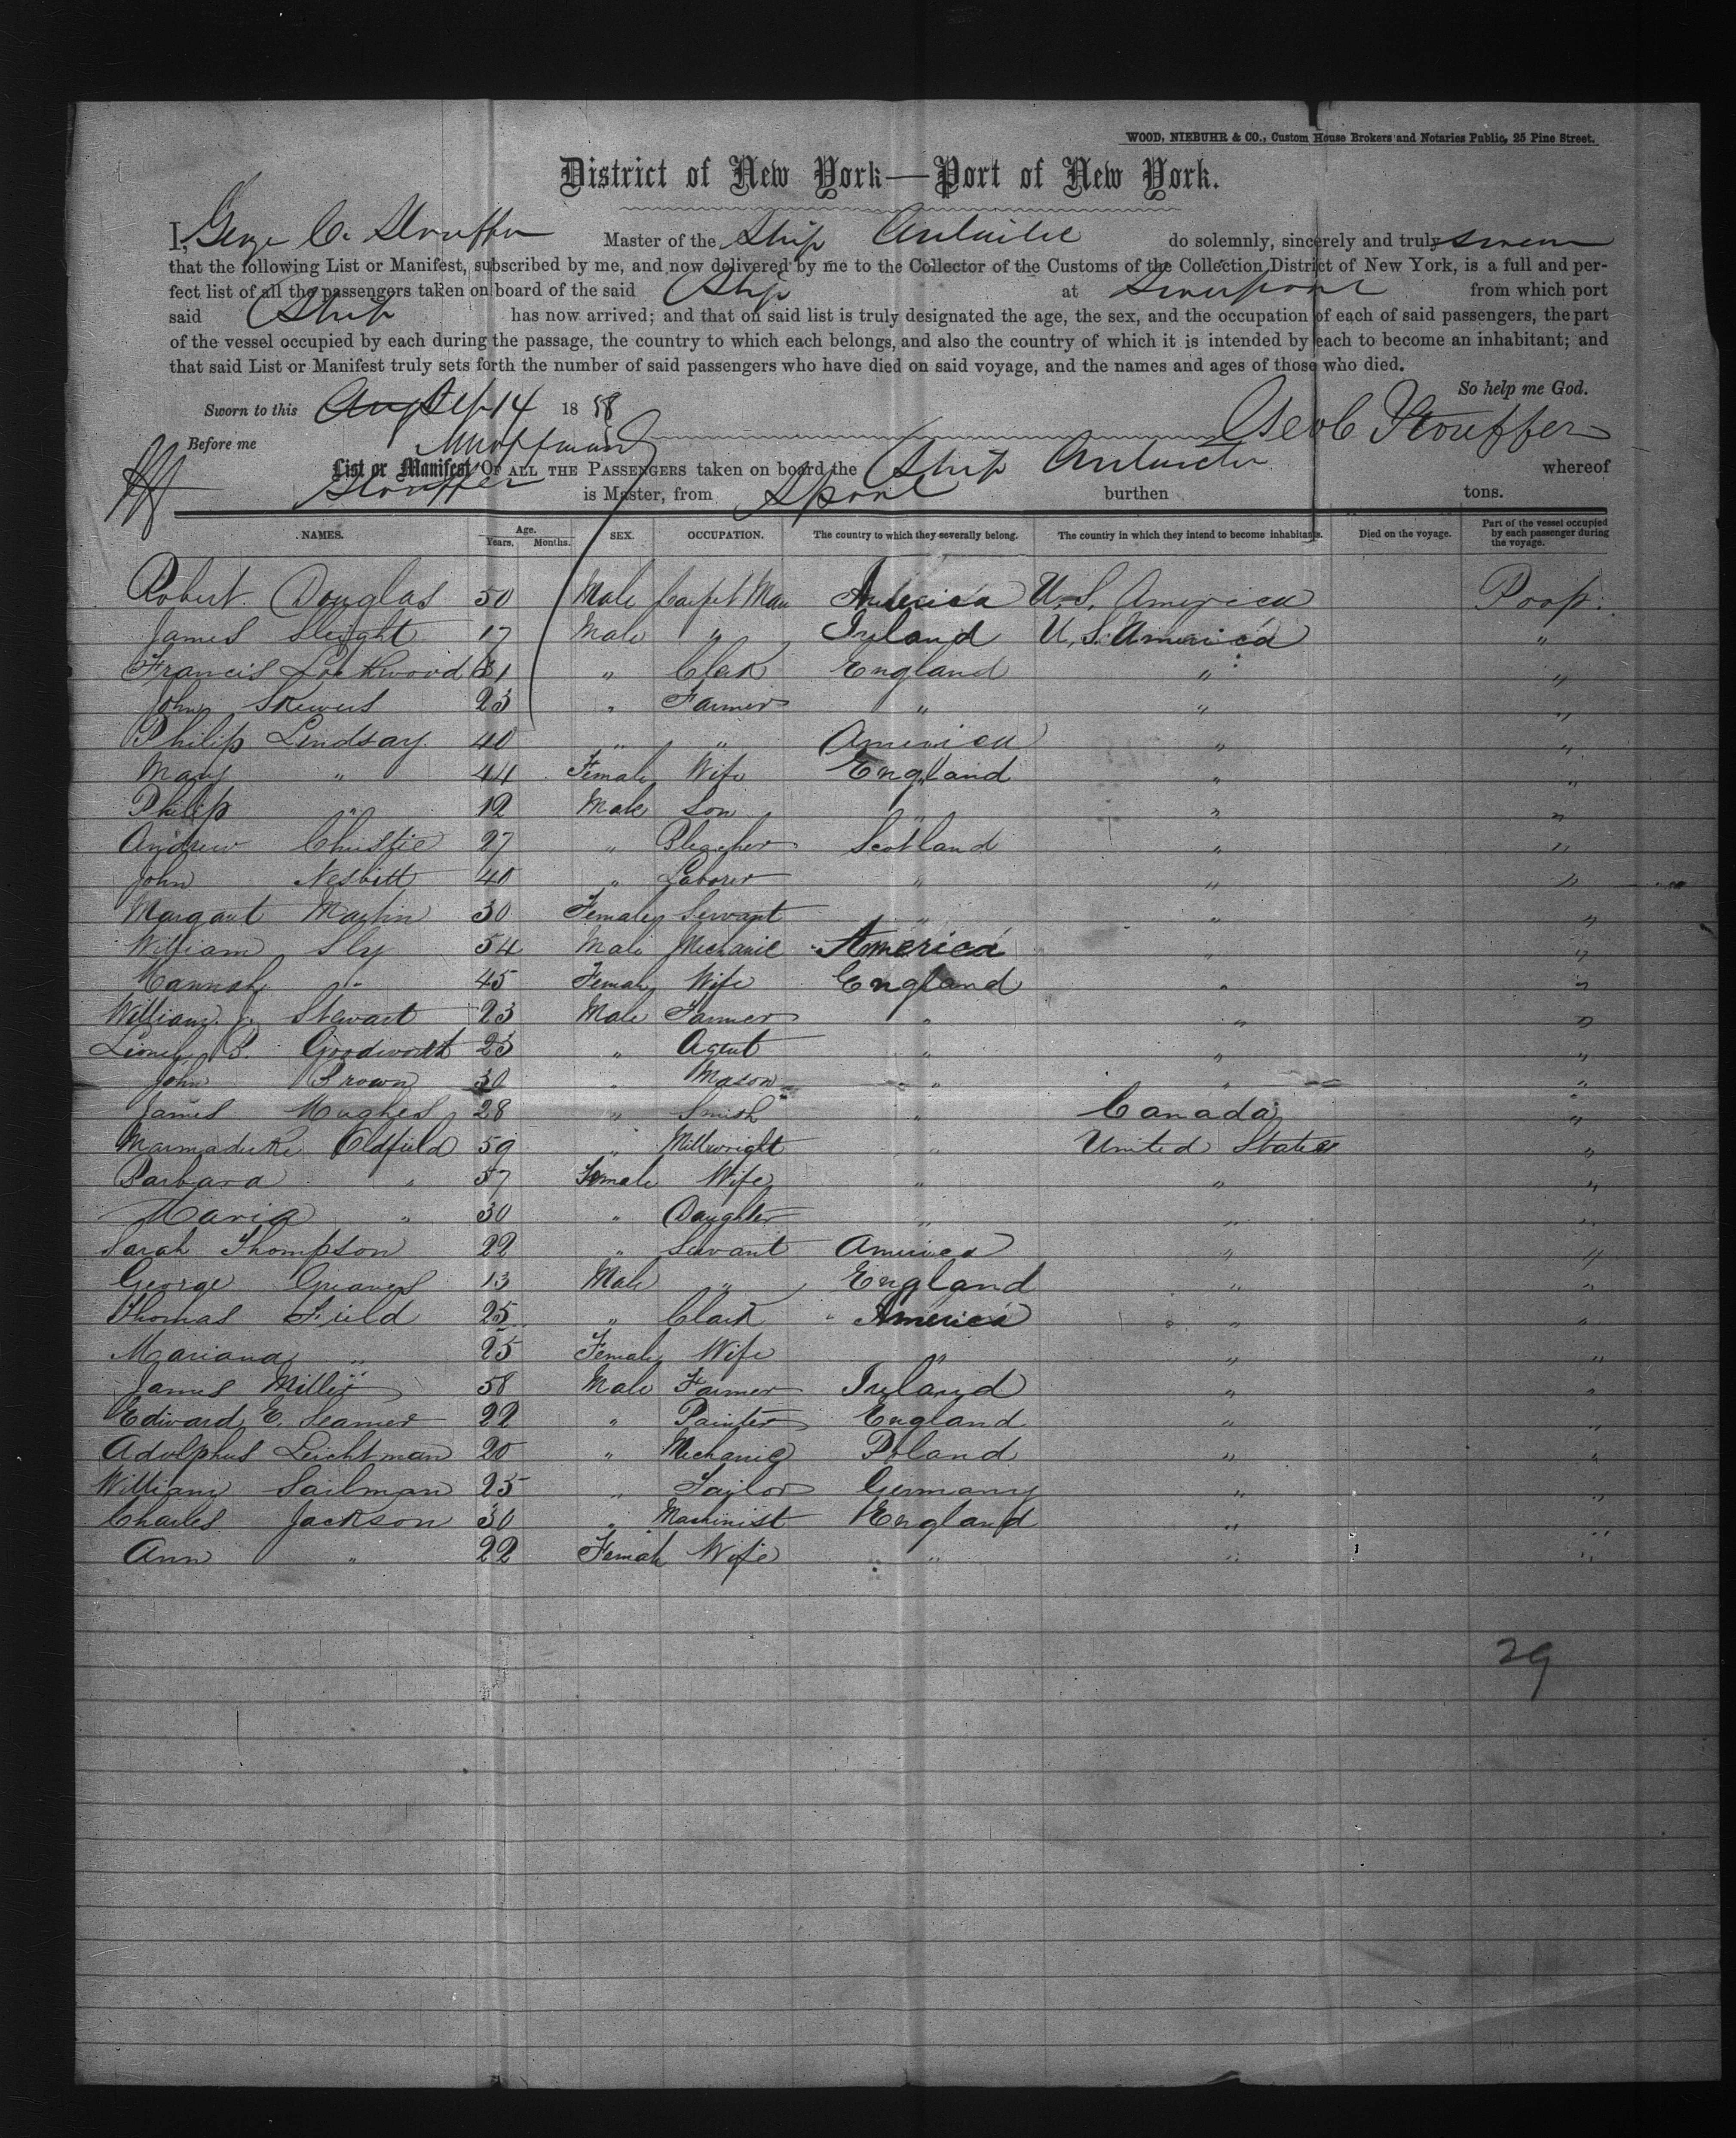 WOOD, NIEBUHR & CO., Custom House Brokers and Notaries Public, 25 Pine Street.
District of New York—Port of New York.
I, George C. Stouffer Master of the Ship Antarctic do solemnly, sincerely and truly swear
that the following List or Manifest, subscribed by me, and now delivered by me to the Collector of the Customs of the Collection District of New York, is a full and per-
fect list of all the passengers taken on board of the said Ship at Liverpool from which port
said Ship has now arrived; and that on said list is truly designated the age, the sex, and the occupation of each of said passengers, the part
of the vessel occupied by each during the passage, the country to which each belongs, and also the country of which it is intended by each to become an inhabitant; and
that said List or Manifest truly sets forth the number of said passengers who have died on said voyage, and the names and ages of those who died.
So help me God.
Sworn to this Aug Sep 14 1858
Geo C Stouffer
Before me
List or Manifest OF ALL THE PASSENGERS taken on board the Ship Antarctic whereof
Stouffer is Master, from Lpool burthen tons.
NAMES. Age. Years. Months. SEX. OCCUPATION. The country to which they severally belong. The country in which they intend to become inhabitants. Died on the voyage. Part of the vessel occupied by each passenger during the voyage.
Robert Douglas 50 Male Carpet Man America U.S. America Poop.
James Sleight 17 Male " Ireland U.S. America "
Francis Lockwood 31 " Clerk England " "
John Skewes 23 " Farmer " " "
Philip Lindsay 40 " " America " "
Mary " 44 Female Wife England " "
Philip " 12 Male Son " " "
Andrew Christie 27 " Bleacher Scotland " "
John Nesbitt 40 " Laborer " " "
Margaret Martin 30 Female Servant " " "
William Sly 54 Male Mechanic America " "
Hannah " 45 Female Wife England " "
William J. Stewart 23 Male Farmer " " "
Lionel B. Goodworth 23 " Agent " " "
John Brown 30 " Mason " " "
James Hughes 28 " Smith " Canada "
Marmaduke Oldfield 59 " Millwright " United States "
Barbara " 57 Female Wife " " "
Maria " 30 " Daughter " " "
Sarah Thompson 22 " Servant America " "
George Greaves 13 Male " England " "
Thomas Field 25 " Clerk America " "
Mariana " 25 Female Wife " " "
James Miller 58 Male Farmer Ireland " "
Edward E. Seamer 22 " Painter England " "
Adolphus Leichtman 20 " Mechanic Poland " "
William Sailman 25 " Tailor Germany " "
Charles Jackson 30 " Machinist England " "
Ann " 22 Female Wife " " "
29